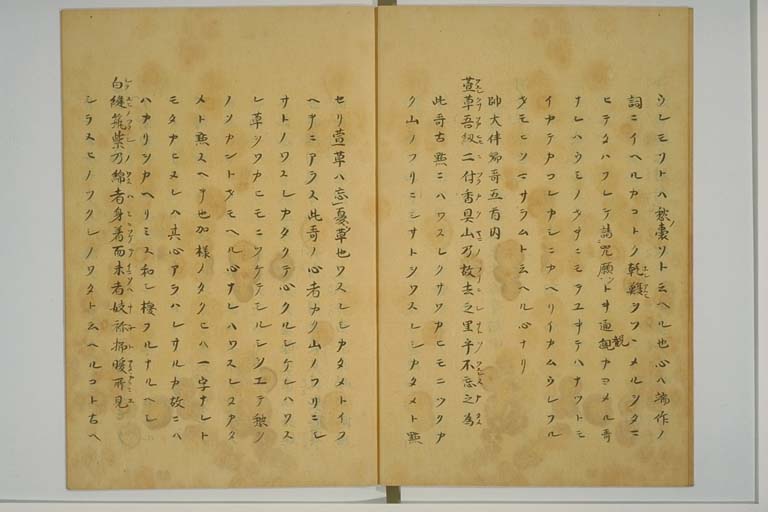 ウレシクトハ愁囊ソト云ヘル也心ハ端作ノ
詞ニイヘルカコトク乾鰒ヲツヽメルツタニ
ヒテタハフレテ請咒願ト通観カヨメル哥
ナレハウミノオキニモテユキテハナツトモ
イカテカコレカシニカヘリイカムウレフル
タモニツニサラムト云ヘル心ナリ
帥大伴卿哥五首内
萱草吾紐二付香具山乃故去之里乎不忘之為
此哥古點ニハワスレクサワカヒモニツクカ
ク山ノフリニシサトヲワスレシカタメト點
セリ萱草ハ忘憂草也ワスレシカタメトイフ
ヘキニアラス此哥ノ心者カク山ノフリニシ
サトノワスレカタクテ心クルシケレハワス
レ草ヲワカヒモニツケテシルシヲエテ
ノソカントオモヘル心ナレハワスレスアタ
メト點スヘキ也加様ノタクヒハ一字ナレト
モタカヒヌレハ其心アラハレサルカ故ニハ
ハカリヲカヘリミス和シ換フルナルヘシ
白縫筑紫乃綿者身着而未者妓祢杼暖所見
シラヌヒノツクシノワタト云ヘルコト古ヘ